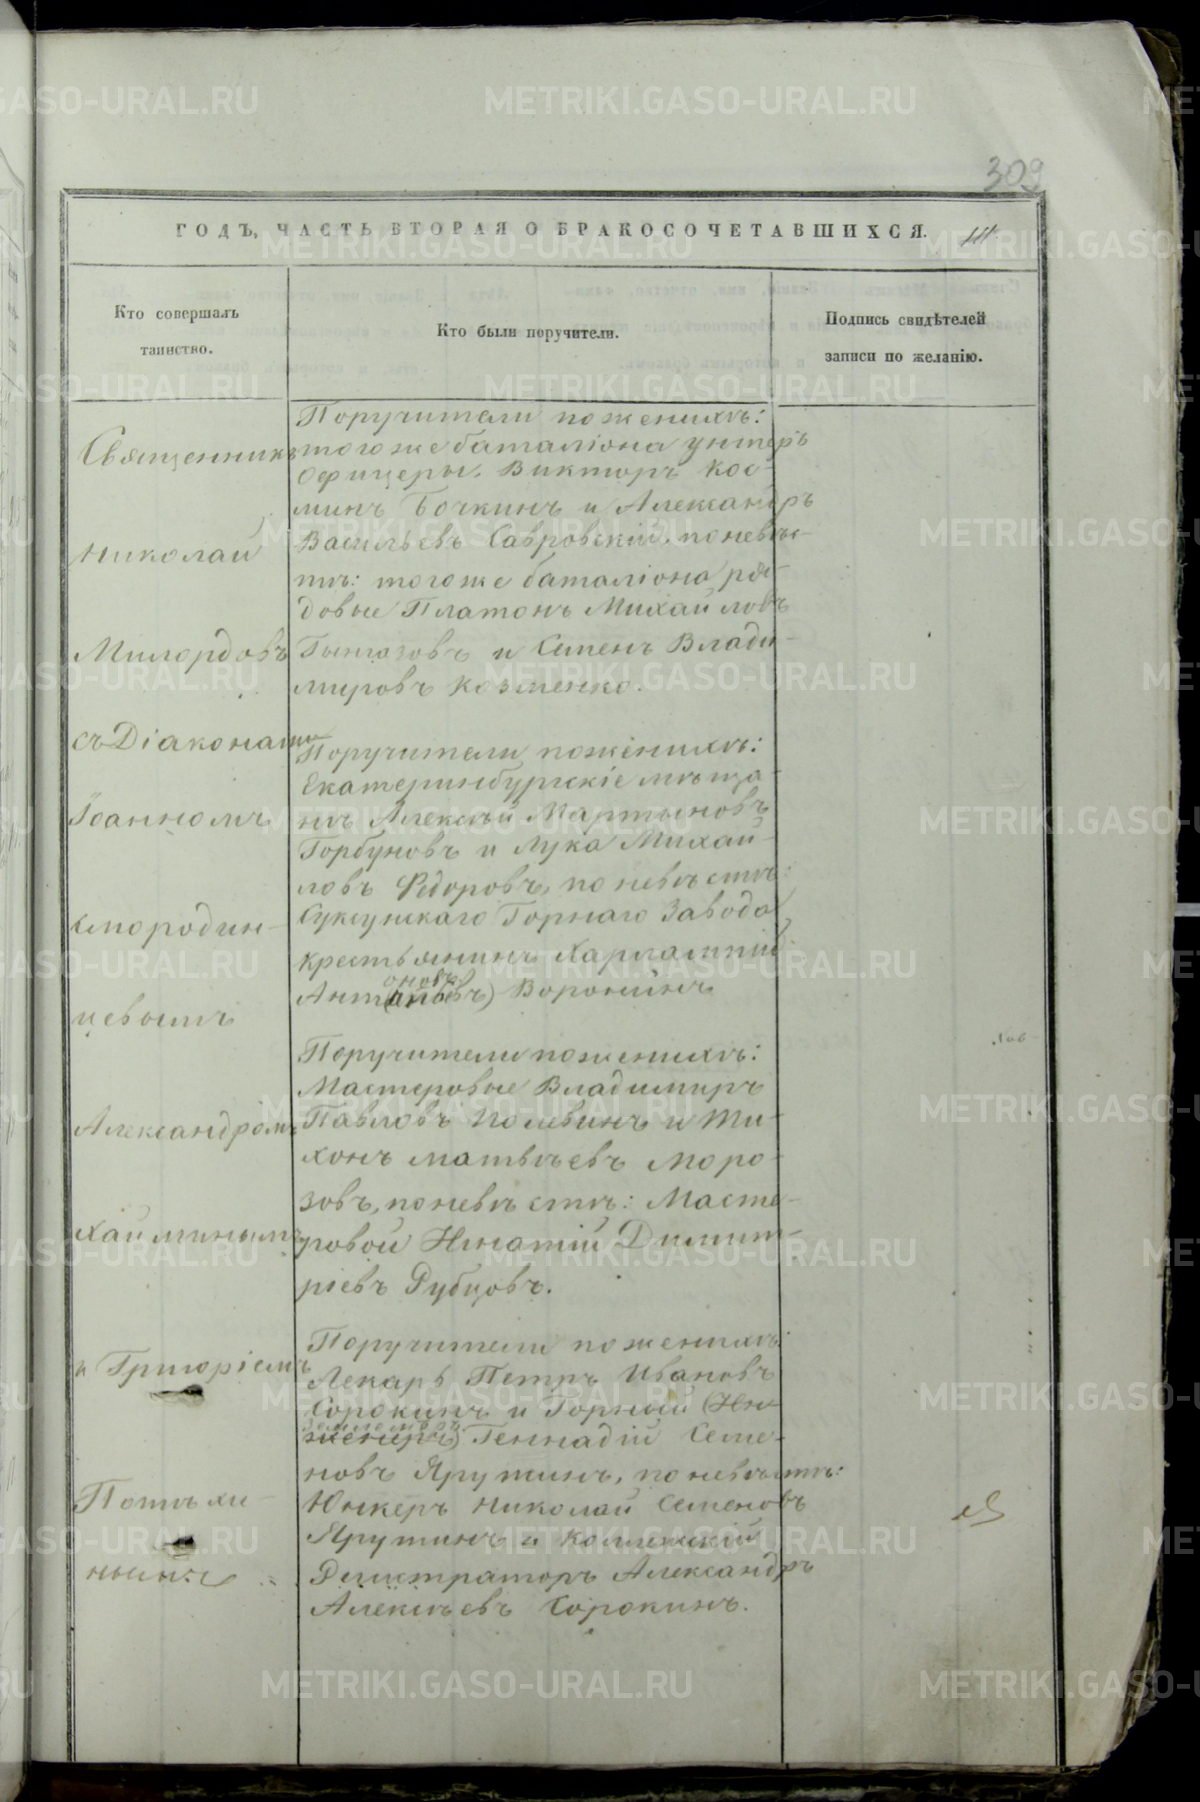 309
ГОДЪ, ЧАСТЬ ВТОРАЯ О БРАКОСОЧЕТАВШИХСЯ.
Кто совершалъ
таинство.
Кто были поручители.
Подпись свидѣтелей
записи по желанію.
Священникъ
Николай
Милордовъ
съ Діаконами
Іоанномъ
Смородин-
цевымъ
Александромъ
Хайминымъ
и Григоріемъ
Потѣхи-
нымъ
Поручители по женихѣ:
тогоже баталіона унтеръ
офицеры, Викторъ Кос-
минъ Бочкинъ и Александръ
Васильевъ Савровскій, по невѣс-
тѣ: тогоже баталіона ря-
довые Платонъ Михайловъ
и Семенъ Влади-
мировъ Козменко.
Поручители по женихѣ:
Екатеринбургскіе мѣща-
нѣ Алексѣй Мартыновъ
Горбуновъ и Лука Михай-
ловъ Ѳедоровъ, по невѣстѣ:
Суксунскаго Горнаго Завода
крестьянинъ Харлампій
оновъ
Воронинъ
Поручители по женихѣ:
Мастеровые Владимиръ
Павловъ Полевинъ и Ти-
хонъ Матвѣевъ Моро-
зовъ, по невѣстѣ: Масте-
ровой Игнатій Димит-
ріевъ Рубцовъ.
Поручители по женихѣ:
Лекарь Петръ Ивановъ
Сорокинъ и Горный (Ин-
землемѣръ
женеръ) Геннадій Семе-
новъ Ярутинъ, по невѣстѣ:
Юнкеръ Николай Семеновъ
Ярутинъ и Коллежскій
Регистраторъ Александръ
Алексѣевъ Сорокинъ.
METRIKI.GASO-URAL.RU